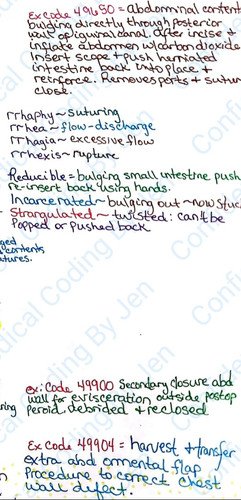 Ex code 49650 = abdominal content
bulging directly through posterior
wall of iguinal canal. after incise +
inflate abdomen w/carbon dioxide
Insert scope + push herniated
intestine back into place +
reinforce. Removes ports + suture
close.
rrhaphy ~ suturing
rrhea ~ flow-discharge
rrhagia ~ excessive flow
rrhexis ~ rupture
Reducible = bulging small intestine push
re-insert back using hands.
Incarcerated ~ bulging out ~ now stuc
Strangulated ~ twisted: can't be
Popped or pushed back
ged
contents
tures.
ex: Code 49900 Secondary closure abd
wall for evisceration outside postop
ring
Peroid. debrided + reclosed
Ex code 49904 = harvest + transfer
extra abdormental flap
Procedure to correct chest
wall defect.
dical Coding By Jen
Confi